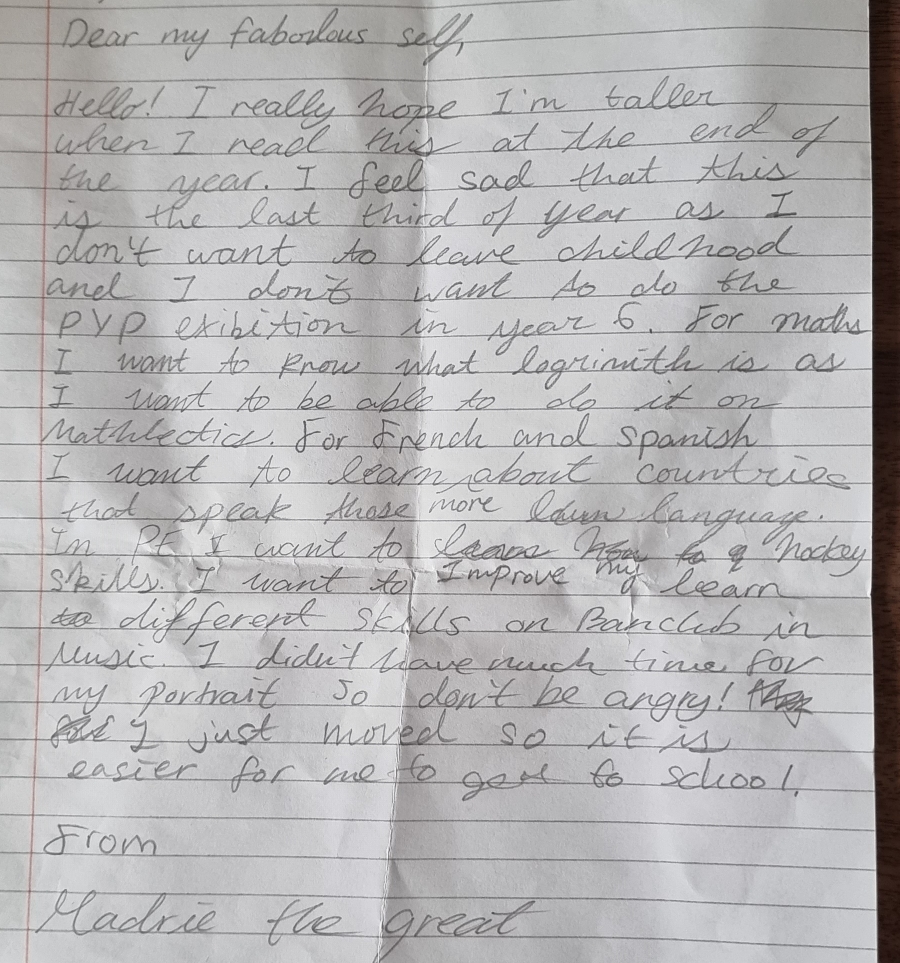 Dear my fabodous self,
Hello! I really hope I'm taller
when I read this at the end of
the year. I feel sad that this
is the last third of year as I
don't want to leave childhood
and I don't want to do the
PYP exibition in year 6. For maths
I want to know what logrimith is as
I want to be able to do it on
Mathletics. For French and Spanish
I want to learn about countries
that speak those more language.
In PE I want to hockey
skills. I want to Improve my learn
different skills on Banclub in
Music. I didn't have much time for
my portrait so don't be angry!
I just moved so it is
easier for me to get to school.
From
Madrie the great